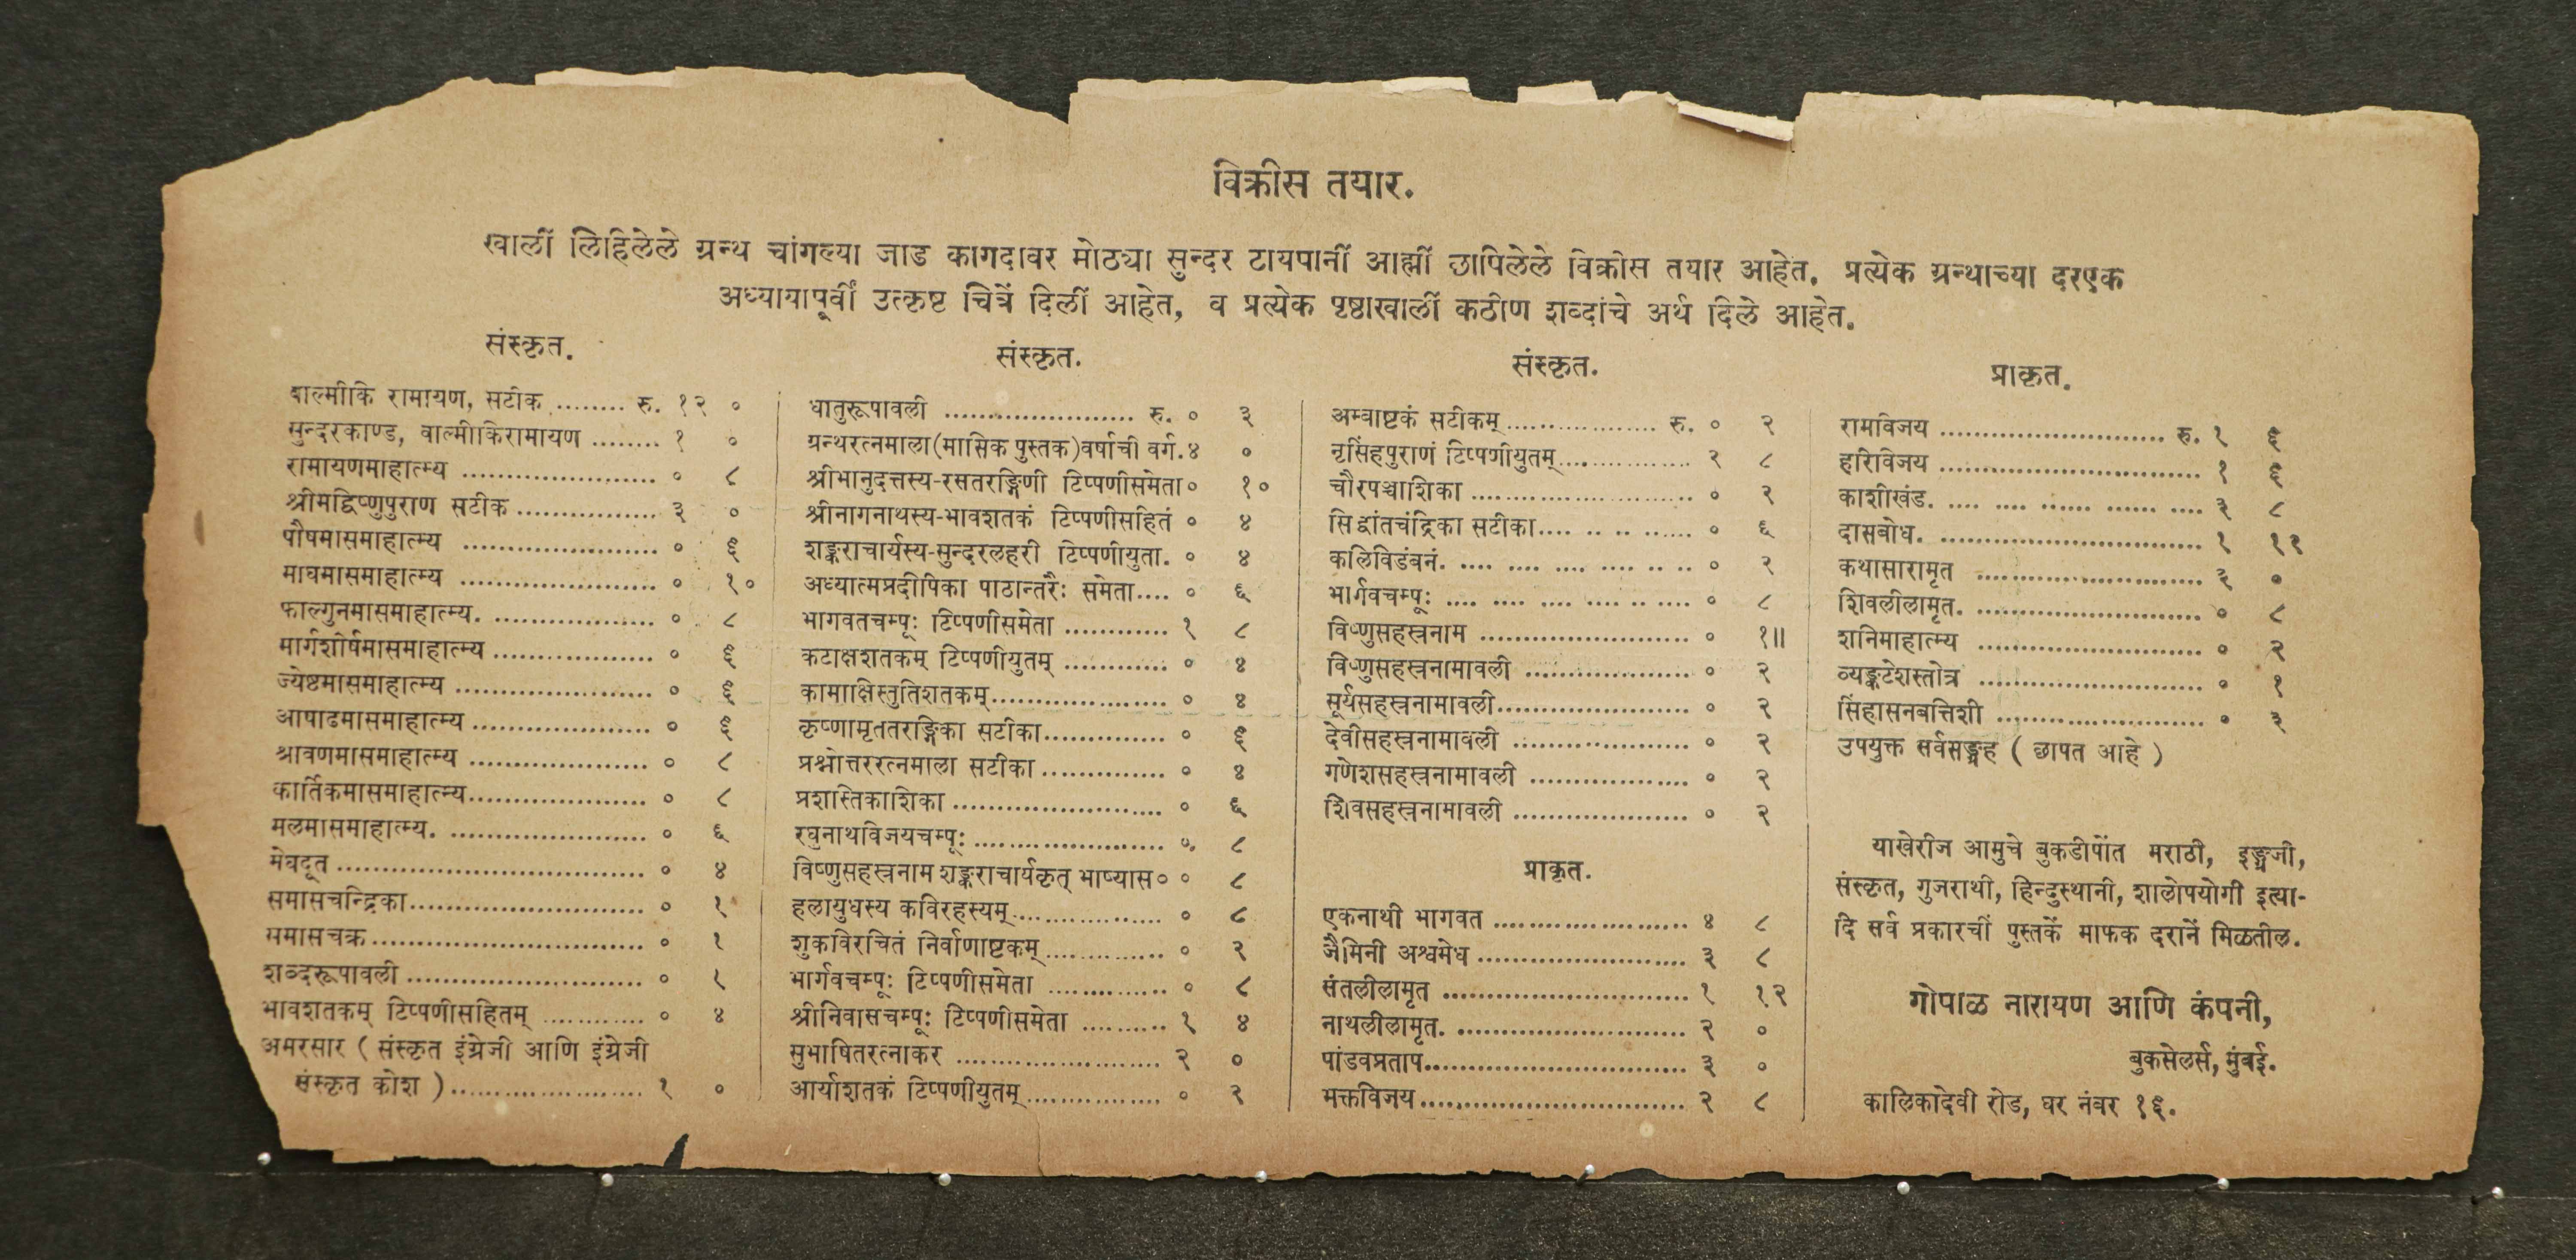 विक्रीस तयार.
खालीं लिहिलेले ग्रन्थ चांगल्या जाड कागदावर मोठ्या सुन्दर टायपानीं आह्मीं छापिलेले विक्रीस तयार आहेत. प्रत्येक ग्रन्थाच्या दरएक
अध्यायापूर्वीं उत्कृष्ट चित्रें दिलीं आहेत, व प्रत्येक पृष्ठाखालीं कठीण शब्दांचे अर्थ दिले आहेत.
संस्कृत.
वाल्मीकि रामायण, सटीक ........ रु. १२ ०
सुन्दरकाण्ड, वाल्मीकिरामायण ........ १ ०
रामायणमाहात्म्य ........................ ० ८
श्रीमद्विष्णुपुराण सटीक ................. ३ ०
पौषमासमाहात्म्य ....................... ० ६
माघमासमाहात्म्य ....................... ० १०
फाल्गुनमासमाहात्म्य. ................... ० ८
मार्गशीर्षमासमाहात्म्य ................... ० ६
ज्येष्ठमासमाहात्म्य ....................... ० ६
आषाढमासमाहात्म्य ..................... ० ६
श्रावणमासमाहात्म्य ..................... ० ८
कार्तिकमासमाहात्म्य..................... ० ८
मलमासमाहात्म्य. ....................... ० ६
मेघदूत .................................... ० ४
समासचन्द्रिका........................... ० १
समासचक्र................................ ० १
शब्दरूपावली ............................ ० १
भावशतकम् टिप्पणीसहितम् ............ ० ४
अमरसार ( संस्कृत इंग्रेजी आणि इंग्रेजी
संस्कृत कोश )....................... १ ०
संस्कृत.
धातुरूपावली ....................... रु. ० ३
ग्रन्थरत्नमाला(मासिक पुस्तक)वर्षाची वर्ग.४ ०
श्रीभानुदत्तस्य-रसतरङ्गिणी टिप्पणीसमेता० १०
श्रीनागनाथस्य-भावशतकं टिप्पणीसहितं ० ४
शङ्कराचार्यस्य-सुन्दरलहरी टिप्पणीयुता. ० ४
अध्यात्मप्रदीपिका पाठान्तरैः समेता.... ० ६
भागवतचम्पूः टिप्पणीसमेता ............ १ ८
कटाक्षशतकम् टिप्पणीयुतम् ............ ० ४
कामाक्षिस्तुतिशतकम्..................... ० ४
कृष्णामृततरङ्गिका सटीका.............. ० ६
प्रश्नोत्तररत्नमाला सटीका .............. ० ४
प्रशस्तिकाशिका ......................... ० ६
रघुनाथविजयचम्पूः ....................... ०. ८
विष्णुसहस्त्रनाम शङ्कराचार्यकृत् भाष्यास० ० ८
हलायुधस्य कविरहस्यम्.................. ० ८
शुकविरचितं निर्वाणाष्टकम्.............. ० २
भार्गवचम्पूः टिप्पणीसमेता .............. ० ८
श्रीनिवासचम्पूः टिप्पणीसमेता .......... १ ४
सुभाषितरत्नाकर ........................ २ ०
आर्याशतकं टिप्पणीयुतम्................ ० २
संस्कृत.
अम्बाष्टकं सटीकम्.................. रु. ० २
नृसिंहपुराणं टिप्पणीयुतम्................ २ ८
चौरपञ्चाशिका .......................... ० २
सिद्वांतचंद्रिका सटीका.... .. .. ...... ० ६
कलिविडंबनं. .... .... .... .... .. .. ० २
भार्गवचम्पूः .... .... .... .... .. .... ० ८
विष्णुसहस्त्रनाम ......................... ० १॥
विष्णुसहस्त्रनामावली .................... ० २
सूर्यसहस्त्रनामावली....................... ० २
देवीसहस्त्रनामावली ..................... ० २
गणेशसहस्त्रनामावली ................... ० २
शिवसहस्त्रनामावली ..................... ० २
प्राकृत.
एकनाथी भागवत ....................... ४ ८
जैमिनी अश्वमेध ......................... ३ ८
संतलीलामृत ............................. १ १२
नाथलीलामृत. ........................... २ ०
पांडवप्रताप............................... ३ ०
भक्तविजय................................ २ ८
प्राकृत.
रामविजय ........................... रु. १ ६
हरिविजय ............................... १ ६
काशीखंड. .... .... ...... ...... .... ३ ८
दासबोध. ............................... १ ११
कथासारामृत ........................... ३ ०
शिवलीलामृत. ........................... ० ८
शनिमाहात्म्य ........................... ० २
व्यङ्कटेशस्तोत्र ........................... ० १
सिंहासनबत्तिशी ......................... ० ३
उपयुक्त सर्वसङ्ग्रह ( छापत आहे )
याखेरीज आमुचे बुकडीपोंत मराठी, इङ्ग्रजी,
संस्कृत, गुजराथी, हिन्दुस्थानी, शालोपयोगी इत्या-
दि सर्व प्रकारचीं पुस्तकें माफक दरानें मिळतील.
गोपाळ नारायण आणि कंपनी,
बुकसेलर्स, मुंबई.
कालिकादेवी रोड, घर नंबर १६.